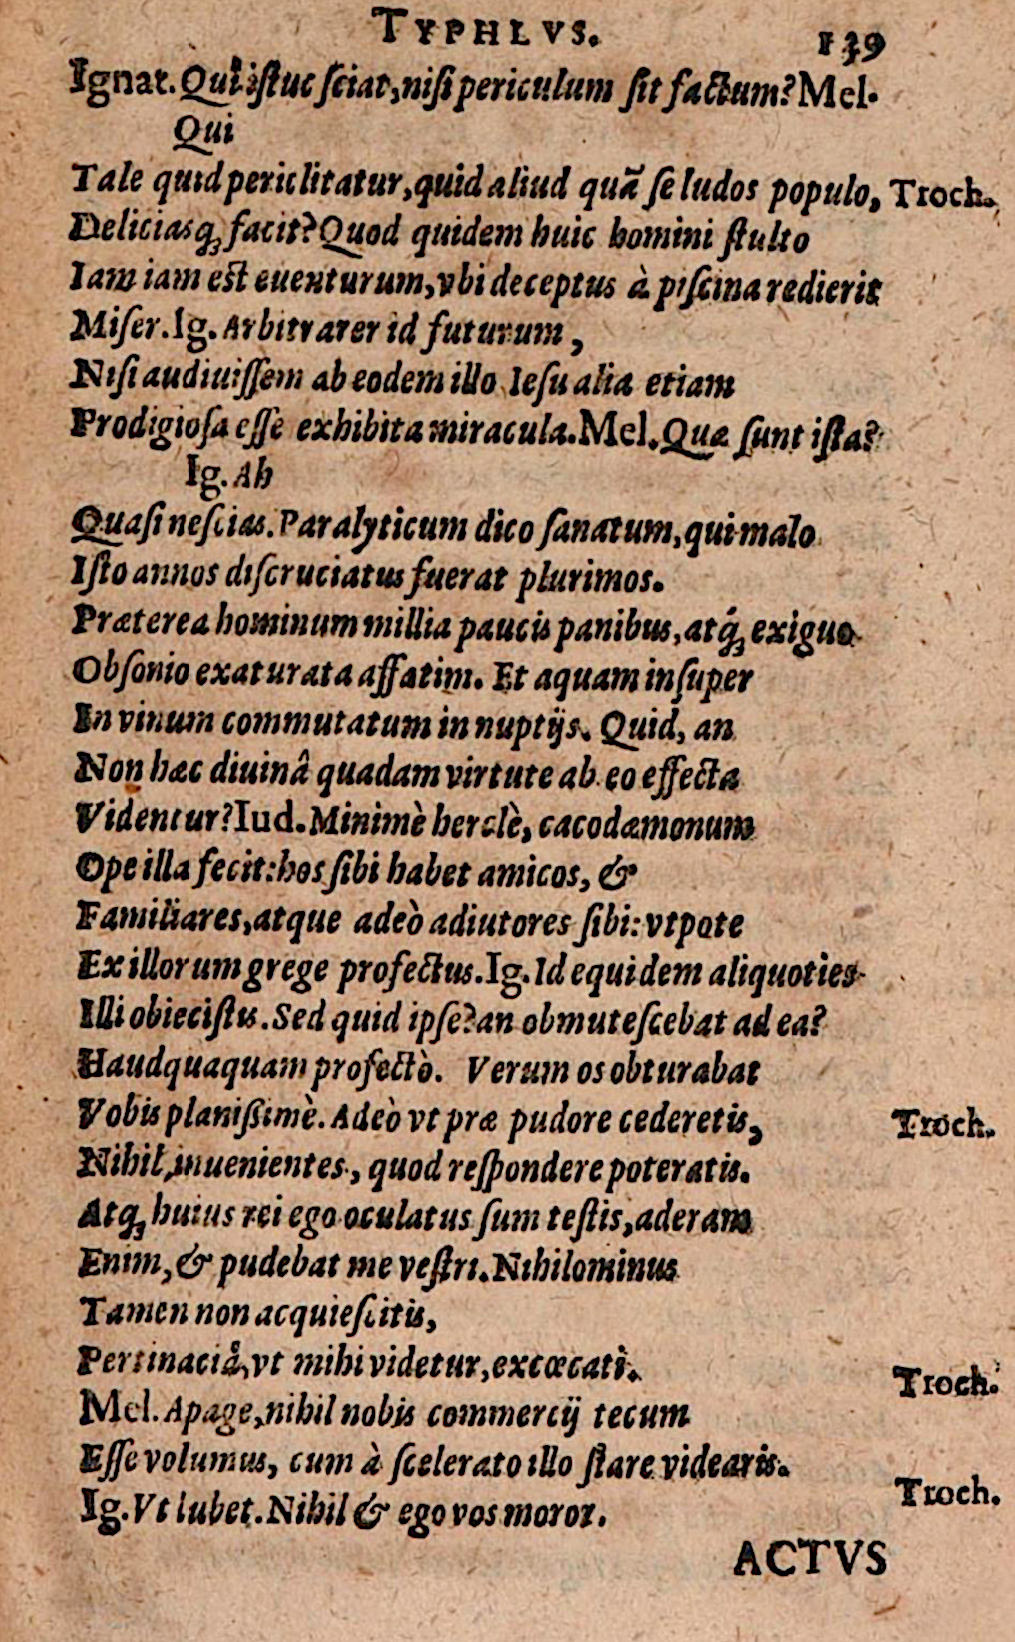 TYPHLVS. 139
Ignat. Quî istuc sciat, nisi periculum sit factum? Mel.
Qui
Tale quid periclitatur, quid aliud quã se ludos populo, Troch.
Deliciasq; facit? Quod quidem huic homini stulto
Iam iam est euenturum, vbi deceptus à piscina redierit
Miser. Ig. Arbitrarer id futurum,
Nisi audiuissem ab eodem illo Iesu alia etiam
Prodigiosa esse exhibita miracula. Mel. Quæ sunt ista?
Ig. Ah
Quasi nescias. Paralyticum dico sanatum, qui malo
Isto annos discruciatus fuerat plurimos.
Præterea hominum millia paucis panibus, atq́; exiguo
Obsonio exaturata affatim. Et aquam insuper
In vinum commutatum in nuptijs. Quid, an
Non hæc diuinâ quadam virtute ab eo effecta
Videntur? Iud. Minimè herclè, cacodæmonum
Ope illa fecit: hos sibi habet amicos, &
Familiares, atque adeò adiutores sibi: vtpote
Ex illorum grege profectus. Ig. Id equidem aliquoties
Illi obiecistis. Sed quid ipse? an obmutescebat ad ea?
Haudquaquam profectò. Verum os obturabat
Vobis planißimè. Adeò vt præ pudore cederetis, Troch.
Nihil inuenientes, quod respondere poteratis.
Atq; huius rei ego oculatus sum testis, aderam
Enim, & pudebat me vestri. Nihilominus
Tamen non acquiescitis,
Pertinaciâ, vt mihi videtur, excœcati. Troch.
Mel. Apage, nihil nobis commercij tecum
Esse volumus, cum à scelerato illo stare videaris.
Ig. Vt lubet. Nihil & ego vos moror. Troch.
ACTVS